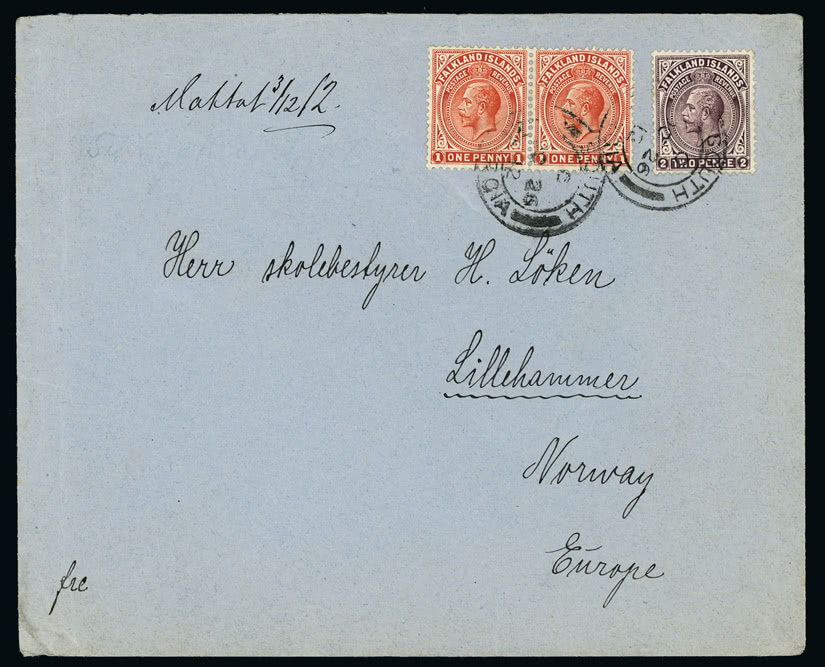 Mottat 3/12/2.
FALKLAND ISLANDS
POSTAGE REVENUE
1 ONE PENNY 1
FALKLAND ISLANDS
POSTAGE REVENUE
1 ONE PENNY
FALKLAND ISLANDS
POSTAGE REVENUE
2 TWO PENCE 2
SOUTH
26
UTH
26
Herr skolebestyrer H. Löken
Lillehammer
Norway
Europe
fre